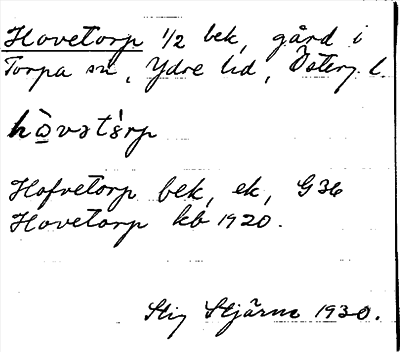 Hovetorp 1/2 bek, gård i
Torpa sn, Ydre hd, Österg. l.
hò̲vətὸrp
Hofvetorp bek, ek, G36
Hovetorp kb 1920.
Stig Stjärne 1930.